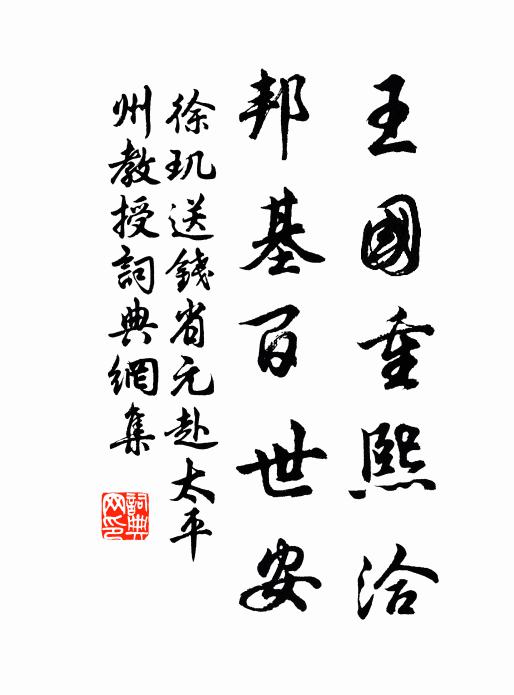 王國重熙洽
邦基百世安
徐玑送錢省元赴太平
州教授詞典網集
詞典
网印